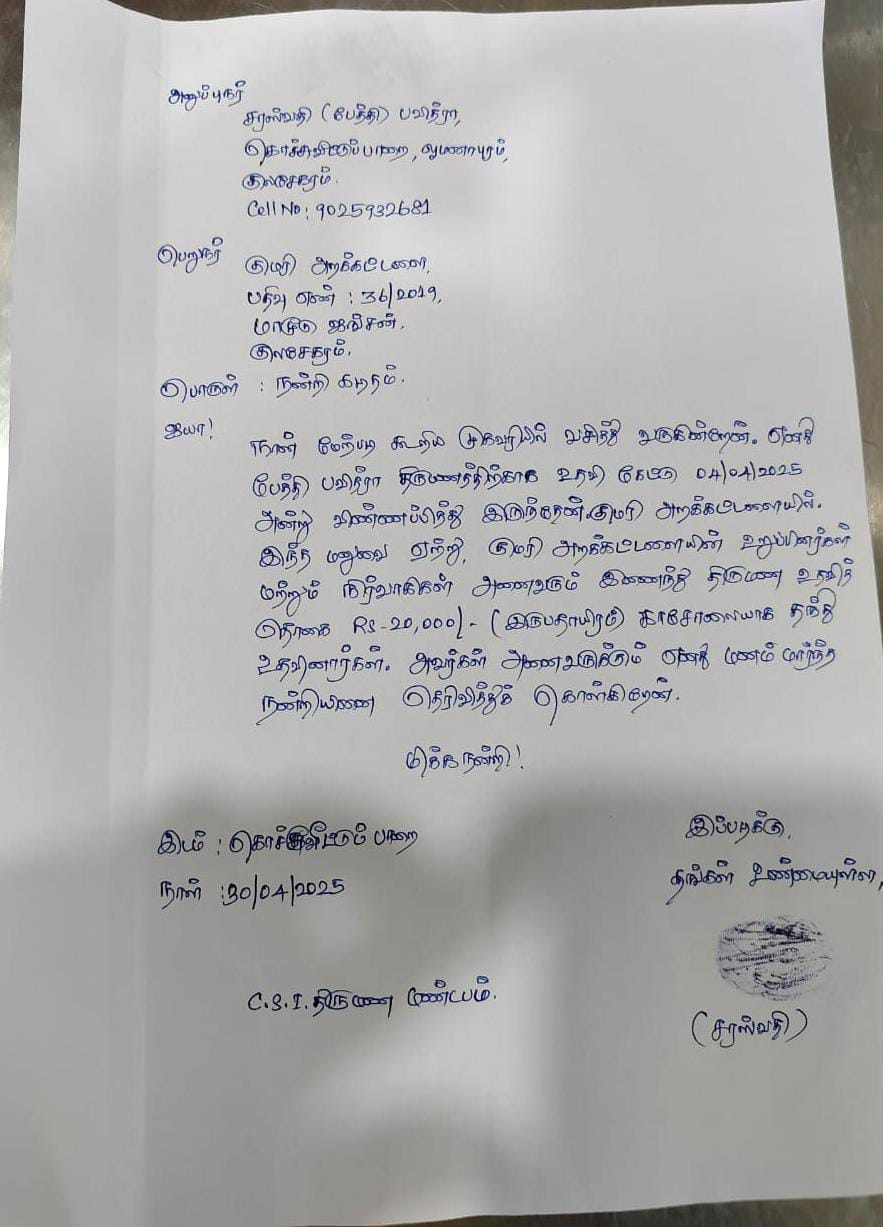 அனுப்புநர்
சரஸ்வதி (பேத்தி) பவித்ரா,
கொச்சுவீட்டுப்பாறை, லூமணாபுரம்,
குலசேகரம்.
Cell No: 9025932681
பெறுநர்
குமரி அறக்கட்டளை,
பதிவு எண் : 36/2019,
மாமூடு ஜங்சன்.
குலசேகரம்.
பொருள் : நன்றி கடிதம்.
ஐயா!
நான் மேற்படி கூறிய முகவரியில் வசித்து வருகின்றேன். எனது
பேத்தி பவித்ரா திருமணத்திற்காக உதவி கேட்டு 04/04/2025
அன்று விண்ணப்பித்து இருந்தேன். குமரி அறக்கட்டளையில்.
இந்த மனுவை ஏற்று, குமரி அறக்கட்டளையின் உறுப்பினர்கள்
மற்றும் நிர்வாகிகள் அனைவரும் இணைந்து திருமண உதவித்
தொகை Rs-20,000/- (இருபதாயிரம்) காசோலையாக தந்து
உதவினார்கள். அவர்கள் அனைவருக்கும் எனது மனம் மார்ந்த
நன்றியினை தெரிவித்துக் கொள்கிறேன்.
மிக்க நன்றி!
இடம் : கொச்சுவீட்டும் பாறை
நாள் : 30/04/2025
இப்படிக்கு,
தங்கள் உண்மையுள்ள,
(சரஸ்வதி)
C.S.I. திருமண மண்டபம்.